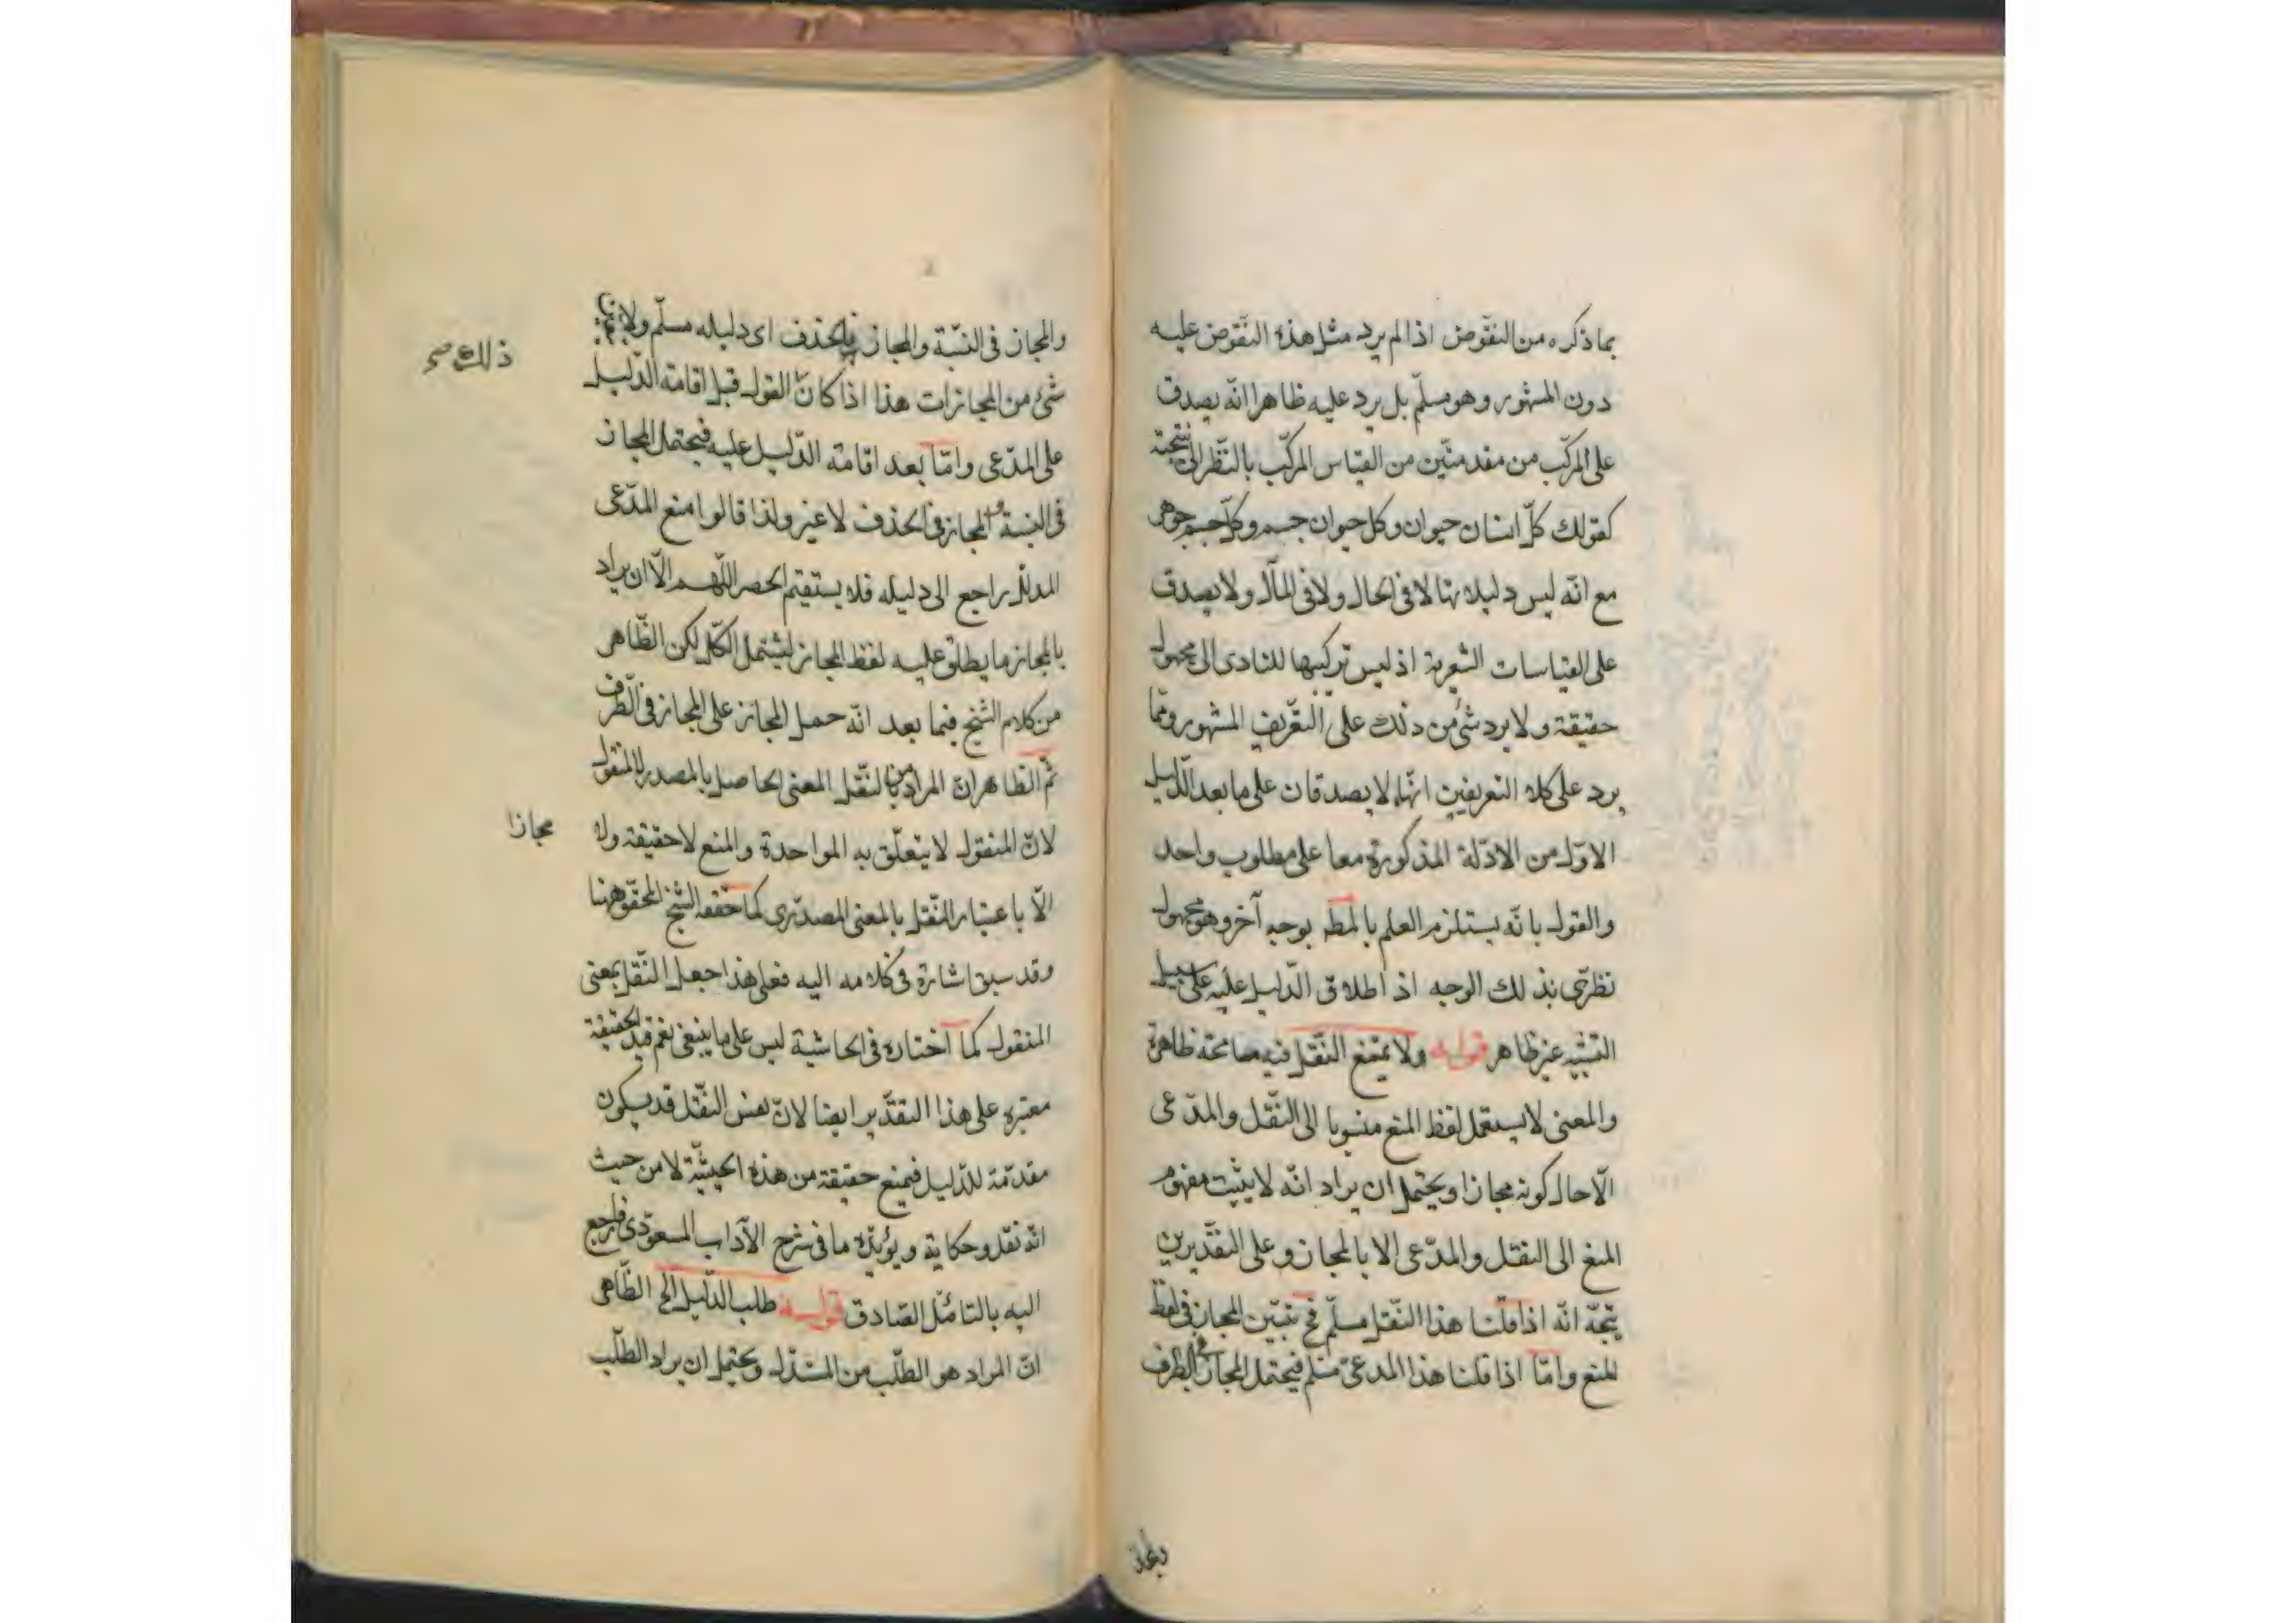 بما ذكره من النقوض اذا لم يرد مثل هذه النقوض عليه
دون المشهور وهو مسلّم بل يرد عليه ظاهرا انّه يصدق
على المركّب من مقدمتين من القياس المركّب بالنّظر الى نتيجة
كقولك كلّ انسان حيوان وكل حيوان جسم وكلّ جسم جوهر
مع انّه ليس دليلا تاما لا فى الحال ولا فى المآل ولا يصدق
على القياسات الشعرية اذ ليس تركيبها للتادى الى مجهول
حقيقة ولا يرد شئ من ذلك على التّعريف المشهور وممّا
يرد على كلا التعريفين انّهما لا يصدقان على ما بعد الدّليل
الاوّل من الادلّة المذكورة معا على مطلوب واحد
والقول بانّه يستلزم العلم بالمط بوجه آخر وهو مجهول
نظرىّ بذلك الوجه اذ اطلاق الدّليل عليه على سبيل
التشبيه غير ظاهر قوله ولا يمنع النّقل فيه مسامحة ظاهرة
والمعنى لا يستعمل لفظ المنع منسوبا الى النّقل والمدّعى
الّا حال كونه مجازا ويحتمل ان يراد انّه لا يثبت مفهوم
المنع الى النقل والمدّعى الا بالمجاز وعلى التقديرين
يتّجه انّه اذا قلنا هذا النّقل مسلّم فح يتبيّن المجاز فى لفظ
المنع وامّا اذا قلنا هذا المدعى مسلم فيحتمل المجاز فى الطرف
والمجاز فى النّسبة والمجاز بالحذف اى دليله مسلّم ولا
شئ من المجازات هذا اذا كان القول قبل اقامة الدّليل
ذلك صح
على المدّعى وامّا بعد اقامة الدّليل عليه فيحتمل المجاز
فى النسبة والمجاز فى الحذف لا غير ولذا قالوا منع المدّعى
المدلّل راجع الى دليله فلا يستقيم الحصر اللّهم الّا ان يراد
بالمجاز ما يطلق عليه لفظ المجاز ليشتمل الكلّ لكن الظّاهر
من كلام الشيخ فيما بعد انّه حمل المجاز على المجاز فى الطّرف
ثمّ الظاهر انّ المراد من النّقل المعنى الحاصل بالمصدر لا المنقول
لانّ المنقول لا يتعلّق به المواخذة والمنع لا حقيقة ولا
مجازا
الّا باعتبار النّقل بالمعنى المصدرى كما حققه الشيخ المحقق هنا
وقد سبق اشارة فى كلامه اليه فعلى هذا جعل النّقل بمعنى
المنقول كما اختاره فى الحاشية ليس على ما ينبغى نعم قيد الحقيقة
معتبرة على هذا التقدير ايضا لانّ نفس النّقل قد يكون
مقدّمة للدّليل فيمنع حقيقة من هذه الحيثيّة لا من حيث
انّه نقل وحكاية ويؤيّده ما فى شرح الآداب المسعودى فارجع
اليه بالتامّل الصّادق قوله طلب الدّليل الخ الظّاهر
انّ المراد هو الطّلب من المستدل ويحتمل ان يراد الطّلب